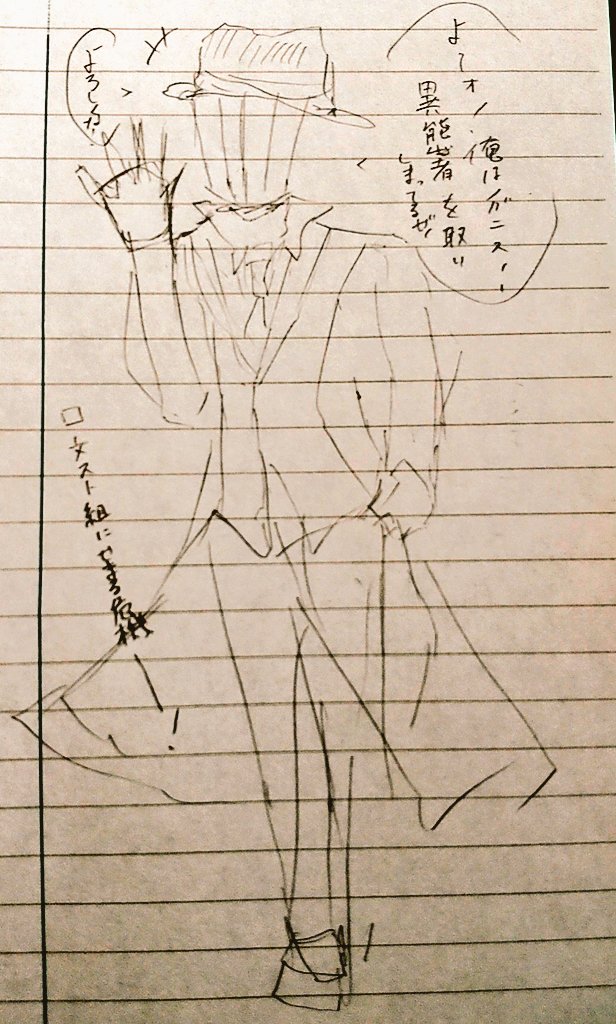 よォ、俺はガニス!
異能者を取り
しまってるぜ!
よろしくな
□文スト組にせまる危機ー!